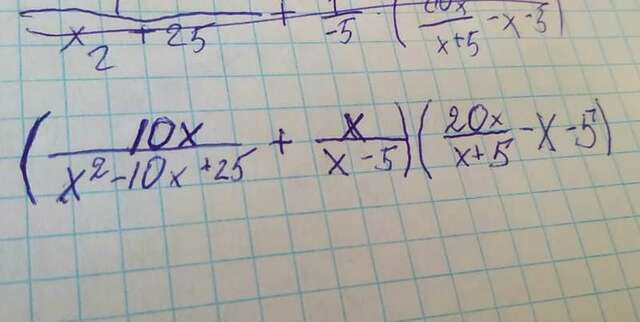 x₂ + 25 + 1/-5 · (20x/x+5 - x - 5)
(10x/x² - 10x + 25 + x/x - 5)(20x/x + 5 - x - 5)